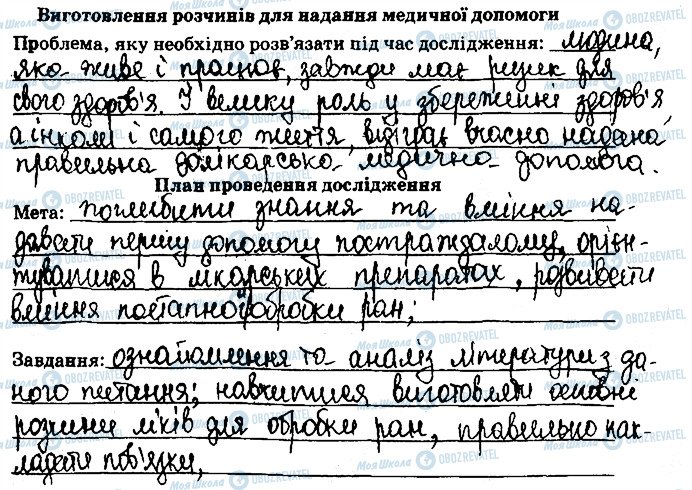 Виготовлення розчинів для надання медичної допомоги
Проблема, яку необхідно розв'язати під час дослідження: людина,
яка живе і працює, завжди має ризик для
свого здоров'я. І велику роль у збереженні здоров'я
а інколи і самого життя, відіграє вчасно надана
правильна долікарсько медично допомога.
План проведення дослідження
Мета: поглибити знання та вміння на-
давати першу допомогу постраждалому, орієн-
туватися в лікарських препаратах, розвивати
вміння поетапної обробки ран;
Завдання: ознайомлення та аналіз літератури з да-
ного питання; навчитися виготовляти основні
розчини ліків для обробки ран, правильно нак-
ладати пов'язки,